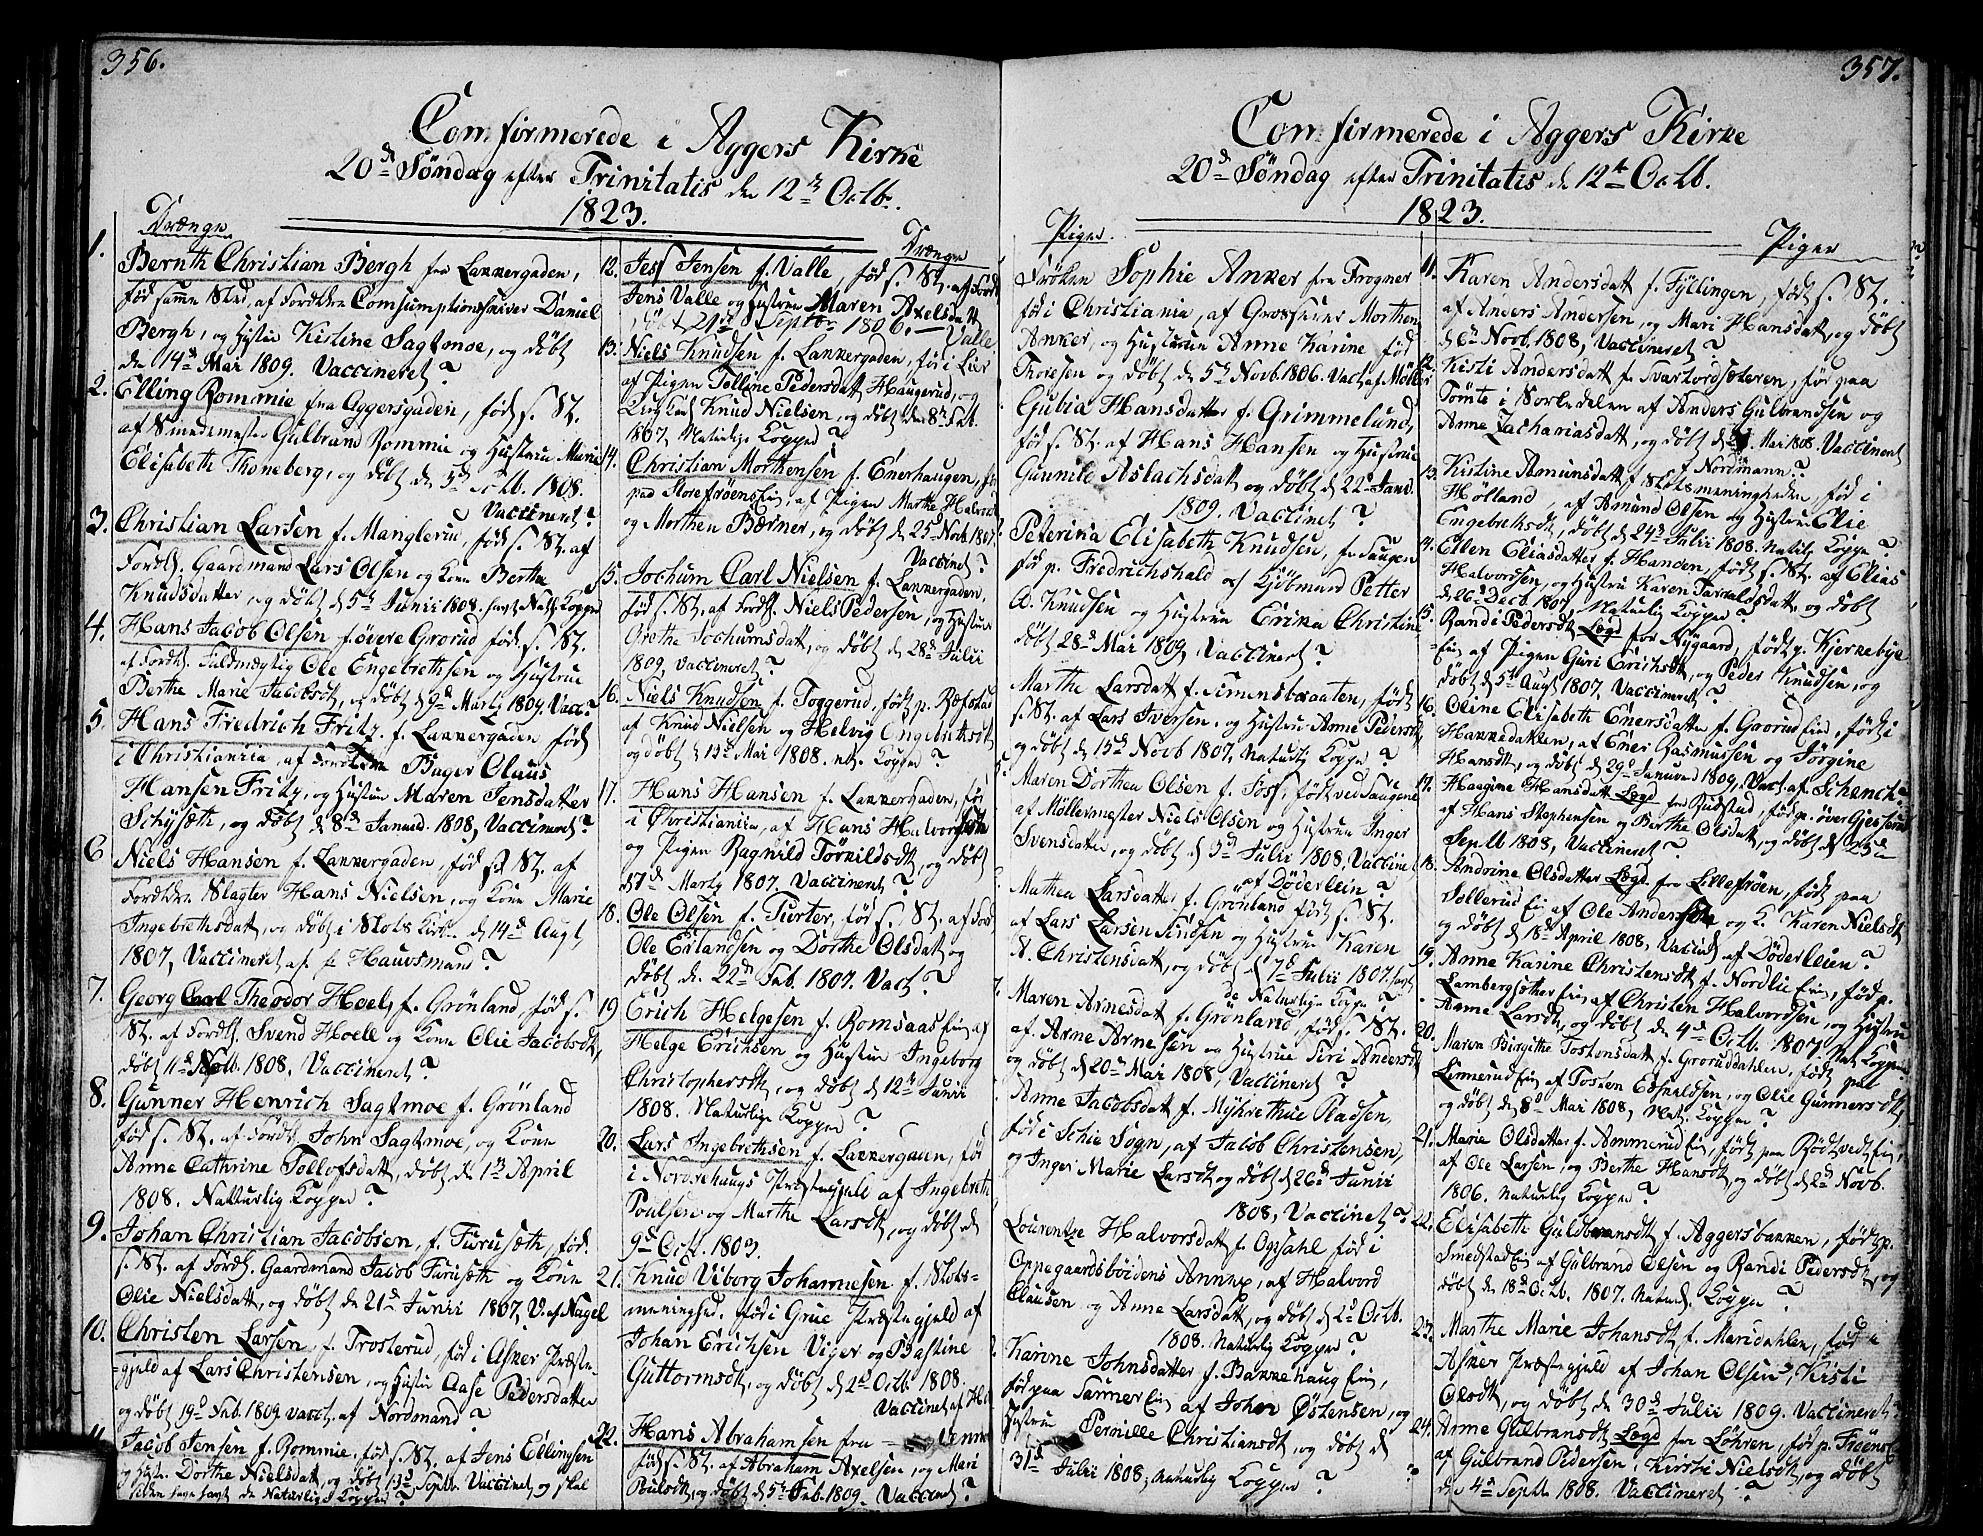 356.
Confirmerede i Aggers Kirke
20de Søndag efter Trinitatis den 12te Octb.
1823.
Drænge
1. Bernth Christian Bergh fra Lakkergaden,
fød samme Sted, af Forældre Comsumptionsskriver Daniel
Bergh, og Hustru Kistine Sagtmoe, og døbt
den 14de Mai 1809. Vaccineret?
2. Elling Rommie fra Aggersgaden, fød s. St.
af Smedemester Gulbrand Rommie og Hustrue Marie
Elisabeth Thoneberg, og døbt den 5te Octb. 1808.
Vaccineret?
3. Christian Larsen f. Manglerud, fød s. St. af
Forældr. Gaardmand Lars Olsen og Kone Berthe
Knudsdatter, og døbt den 5te Junii 1808. havt Nat. Kopper
4. Hans Jacob Olsen f. øvere Grorud fød s. St.
af Forældr. Fuldmægtig Ole Engebrethsen og Hustrue
Berthe Marie Jacobsdt, og døbt d 9de Marty 1809. Vacc?
5. Hans Fredrich Fritz f. Lakkergaden fød
i Christiania, af Forældre Bager Olaus
Hansen Fritz, og Hustrue Maren Jensdatter
Schysæth, og døbt d 8de Januar. 1808, Vaccineret?
6 Niels Hansen f. Lakkergaden, fød s. St. af
Forældre Slagter Hans Nielsen, og Kone Marie
Ingebrethsdatt, og døbt i Slots Kirke den 14de Augt
1807, Vaccineret af Hauvsmand?
7. Georg Carl Theodor Hoel, f. Grønland, fød s.
St. af Forældr. Svend Hoell og Kone Olie Jacobsdt,
døbt 11te Septb. 1808, Vaccineret?
8. Gunner Henrich Sagtmoe f. Grønland
fød s. St. af Forældr. John Sagtmoe, og Kone
Anne Cathrine Tollofsdatt, døbt den 1ste April
1808. Natturlig Kopper?
9. Johan Christian Jacobsen, f. Furusæth, fød
s. St. af Forældr. Gaardmand Jacob Furusæth og Kone
Olie Nielsdatt, og døbt den 21de Junii 1807, V. af Nagel
10. Christen Larsen f. Trosterud, fød i Asker Præste-
-gjeld af Lars Christensen, og Hustru Aase Pedersdatter
og døbt 19de Feb. 1809 vacct. af Nordmand?
Jacob Jensen f. Rommie, fød s. St. af Jens Ellingsen
og Hustr. Dorthe Nielsdatt, og døbt 13de Septb. Vaccinet, og skal
siden have havt de Naturlige Kopper?
Drænge
12. Jess Jensen f. Valle, fød s. St. af Forældr
Jens Valle og Hustrue Maren Axelsdatt
døbt 21de Septbr 1806. Valle
13. Niels Knudsen f. Lakkergaden, fød i Lier
af Pigen Tolline Pedersdatt Haugerud, og
Ungkarl Knud Nielsen, og døbt den 8de Feb.
1807, Naturlige Kopper?
14. Christian Morthensen f. Enerhaugen, fød
paa Storefrøens Eie, af Pigen Marthe Halvorsd
og Morthen Bærner, og døbt den 25de Novb. 1807
Vaccinet?
15. Jochum Carl Nielsen f. Lakkergaden,
fød s. St. af Forældr. Niels Pedersen, og Hustrue
Grethe Jochumsdatt, og døbt den 28de Julii
1809, vaccineret?
16. Niels Knudsen f. Toggerud, født p. Refstad
af Knud Nielsen og Helvig Engebrethsdt
og døbt d 15de Mai 1808. nt. Kopper?
17. Hans Hansen f. Lakkergaden, fød
i Christiania, af Hans Halvorsen
og Pigen Ragnild Törkildsdt, og døbt
d 17de Marty 1807. Vaccineret?
18. Ole Olsen f. Turter, fød s. St. af Forældr
Ole Erlandsen og Dorthe Olsdatt og
døbt den 22de Feb. 1807. Vact?
19 Erich Helgesen f. Romsaas Eie, af
Helge Erichsen og Hustrue Ingeborg
Christophersdt, og døbt den 12te Junii
1808. Naturlige Kopper?
20. Lars Ingebrethsen f. Lakkergaden, fød
i Nordrehaugs Præstegjeld af Ingebreth
Poulsen og Marthe Larsdt, og døbt den
9de Octb. 1803.
21. Knud Viborg Johannesen f. Slots-
menighed. fød i Grue Præstegjeld af
Johan Erichsen Viger og Bastine
Guttormsdt, og døbt den 2de Octb. 1808.
Vaccinet af
22. Hans Abrahamsen fra
fød s. St. af Abraham Axelsen, og Mari
Poulsdt, og døbt den 5te Feb. 1809. Vaccinet?
357.
Confirmerede i Aggers Kirke
20de Søndag efter Trinitatis d 12te Octb.
1823.
Piger.
Frøken Sophie Anker fra Frogner
fød i Christiania, af Grosserer Morthen
Anker, og Hustrue Anne Karine fød
Thoresen og døbt den 5te Novb. 1806. Vact. af Møller
Gubia Hansdatter f. Grimmelund,
fød s. St. af Hans Hansen og Hustrue
Gunnile Aslachsdatt og døbt den 22de Janr.
1809. Vaccinet?
Peterina Elisabeth Knudsen, fra Saugen
fød p. Fredrichshald af Kjøbmand Petter
A. Knudsen og Hustrue Erika Christine
døbt 28de Mai 1809, Vaccineret?
Marthe Larsdatt f. Simensbraaten, født
s. St. af Lars Iversen, og Hustrue Anne Pedersdt
og døbt den 15de Novb 1807, Naturlig Kopper?
Maren Dorthea Olsen f. Foss, født ved Saugene
af Möllermester Niels Olsen og Hustrue Inger
Svensdatter, og døbt den 3de Julii 1808, Vaccinet
af Döderlein
Mathea Larsdatter f. Grönland født s. St.
af Lars Larsen Findsen og Hustrue Karen
A. Christensdatt, og døbt d 7de Julii 1807. havt
de Naturlige Kopper?
7. Maren Arnesdat f. Grønland, fød s. St.
af Arne Arnesen og Hustrue Siri Andersdt
og døbt den 20de Mai 1808, Vaccineret?
Anne Jacobsdatt f. Myhrethue Pladsen,
fød i Schie Sogn, af Jacob Christensen,
og Inger Marie Larsdt og døbt d 26de Junii
1808, Vaccinet?
Lourentze Halvorsdatt f. Opsahl fød i
Oppegaardsböidens Annex, af Halvord
Clausen, og Anne Larsdatt, og døbt d 2de Octb.
1808. Naturlig Kopper?
Karine Johnsdatter f. Bakkehaug Eie,
fød paa Tanner Eie af John Østensen, og
Hustrue Pernille Christiansdt, og døbt d
31te Julii 1808, naturlig Kopper?
Piger
11. Karen Andersdatt f. Fyllingen, født s. St.
af Anders Andersen, og Mari Hansdatt, og døbt
d 6te Novb. 1808, Vaccineret?
12. Kisti Andersdatt f. Svartordsæteren, fød paa
Tomte i Norkedalen af Anders Gulbrandsen og
Anne Zachariasdatt, og døbt d Mai 1808. Vaccineret
f. Nordmann?
13. Kistine Amunsdatt f. Slotsmenigheden, fød i
Hølland af Amund Olsen og Hustrue Elie
Engebrethsdt, døbt d 24de Julii 1808. Naturlig Kopper?
14. Ellen Eliasdatter f. Handen, født s. St. af Elias
Halvordsen, og Hustrue Karen Taraldsdatt, og døbt
d 26de Decb. 1807, Naturlig Kopper?
15. Randi Pedersdt Lægd fra Nygaard, født p. Kjernebye
Eie, af Pigen Guri Erichsdt, og Peder Knudsen, og
døbt d 5te Augt 1807, Vaccineret?
16. Oline Elisabeth Enersdatter f. Grorud Eie, født i
Hakkedakken, af Ener Rasmussen og Jörgine
Hansdt, og døbt d 29de Januar 1809, Vact. af Schenck?
17. Haagine Hansdatt Lægd fra Rustad, fød p. över Gjesserud
af Hans Stephensen og Berthe Olsdatt, og døbt d 25de
Septb 1808, Vaccineret?
18. Andrine Olsdatter Lægd fra Lillefrøen, født paa
Sollerud Eie af Ole Andersen og K. Karen Nielsdt
og døbt d 18de April 1808, Vaccined af Døderleien?
19. Anne Karine Christensdt f. Nordlie Eie, fød p.
Lambergsæther Eie, af Christen Halvordsen, og Hustrue
Anne Larsdt, og døbt den 4de Octb. 1807. Nat. Kopper
20. Maren Birgithe Tostensdatt f. Groruddahlen, født paa
Linnerud Eie af Tosten Edvaldsen, og Olie Gunnersdt
og døbt den 8de Mai 1808, Nat. Kopper?
21. Marie Olsdatter f. Ammerud Eie, født paa Rødtvedt Eie,
af Ole Larsen, og Berthe Hansdt, og døbt d 2de Novb.
1806. Naturlig Kopper?
22. Elisabeth Guldbransdt f. Aggersbakken, født p.
Smedstad Eie af Gulbrand Olsen og Randi Pedersdt, og
døbt d 18de Octb. 1807. Naturl. Kopper?
23. Marthe Marie Johansdt f. Maridahlen, fød i
Asker Præstegjeld af Johan Olsen, Kisti
Olsdt, og døbt den 30de Julii 1809. Vaccineret
24. Anne Gulbransdt Lægd fra Löhren, fød p. Frøens Eie
af Gulbrand Pedersen, Kirsti Nielsdt, og døbt
den 4de Septb. 1808. Vaccineret?